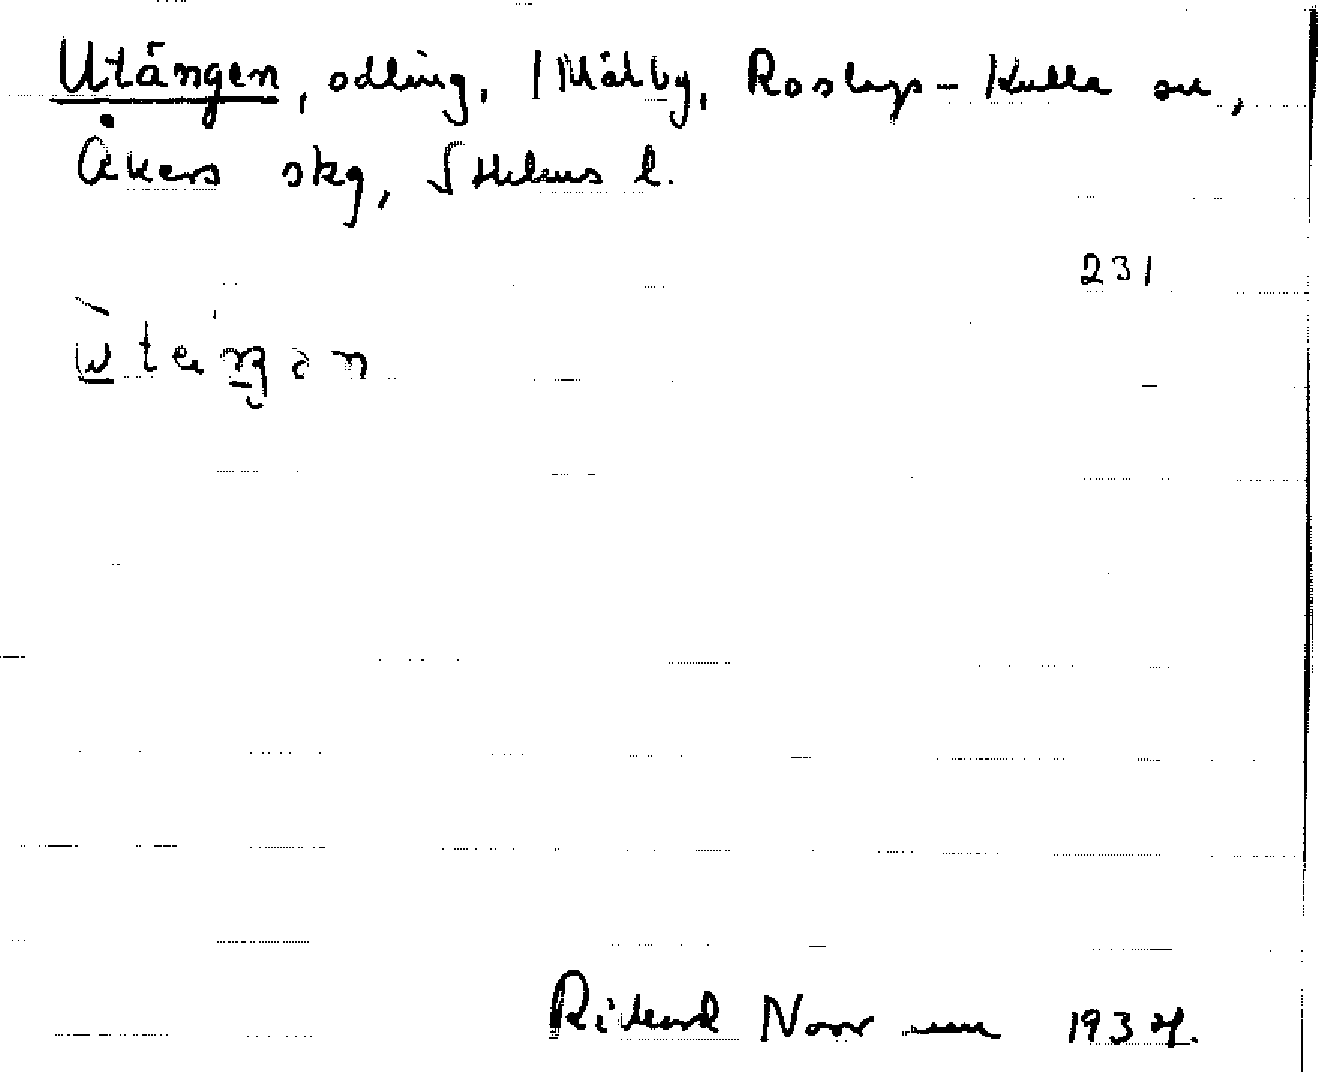 Utängen, odling, i Mälby, Roslags-Kulla sn,
Åkers skg, Sthlms l.
231
Rikard Norrman 1934.